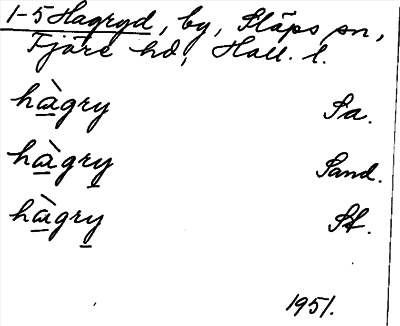 1-5 Hagryd, by, Släps sn,
Fjäre hd, Hall. l.
hàgry Sa.
hàgry Sand.
hàgry St.
1951.